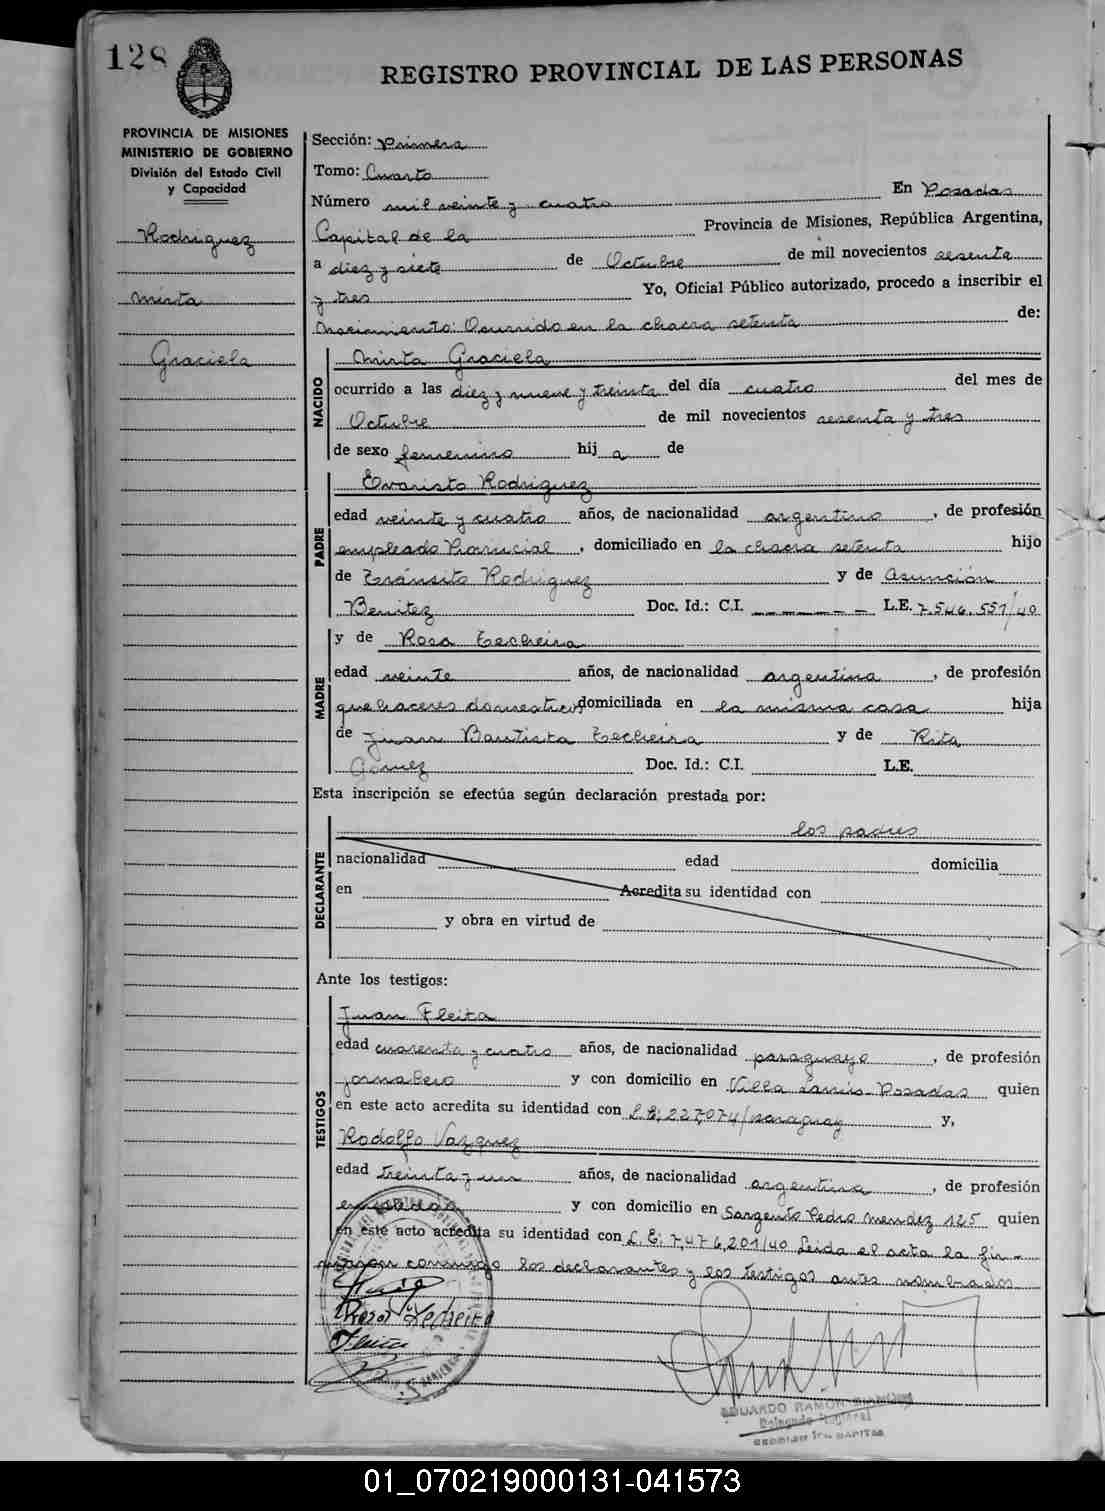 128
REGISTRO PROVINCIAL DE LAS PERSONAS
PROVINCIA DE MISIONES
MINISTERIO DE GOBIERNO
División del Estado Civil
y Capacidad
Rodriguez
Mirta
Graciela
Sección: Primera
Tomo: Cuarto
Número mil veinte y cuatro En Posadas
Capital de la Provincia de Misiones, República Argentina,
a diez y siete de Octubre de mil novecientos sesenta
y tres Yo, Oficial Público autorizado, procedo a inscribir el
Nacimiento: Ocurrido en la chacra setenta de:
NACIDO
Mirta Graciela
ocurrido a las diez y nueve y treinta del día cuatro del mes de
Octubre de mil novecientos sesenta y tres
de sexo femenino hij a de
PADRE
Evaristo Rodriguez
edad veinte y cuatro años, de nacionalidad argentino, de profesión
empleado Provincial, domiciliado en la chacra setenta hijo
de Tránsito Rodriguez y de Asunción
Benitez Doc. Id.: C.I. _ _ _ _ _ _ _ L.E. 7.546.551/40
MADRE
y de Rosa Techeira
edad veinte años, de nacionalidad argentina, de profesión
quehaceres domesticos domiciliada en la misma casa hija
de Juan Bautista Techeira y de Rita
Gomez Doc. Id.: C.I. L.E.
Esta inscripción se efectúa según declaración prestada por:
DECLARANTE
los padres
nacionalidad edad domicilia
en Acredita su identidad con
y obra en virtud de
Ante los testigos:
TESTIGOS
Juan Fleita
edad cuarenta y cuatro años, de nacionalidad paraguayo, de profesión
jornalero y con domicilio en Villa Lanús Posadas quien
en este acto acredita su identidad con L.E; 227,074/paraguay y,
Rodolfo Vazquez
edad treinta y un años, de nacionalidad argentina, de profesión
empleado y con domicilio en Sargento Pedro Mendez 125 quien
en este acto acredita su identidad con L.E; 7,476,201/40 Leida el acta la fir-
maron conmigo los declarantes y los testigos antes nombrados
Rosa Techeira
Fleita
EDUARDO RAMON
Delegado Regional
01_070219000131-041573